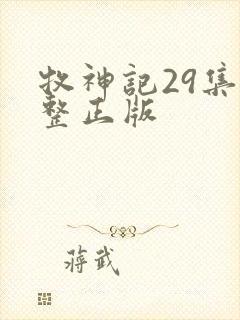 牧神记29集
整正版
蒋武